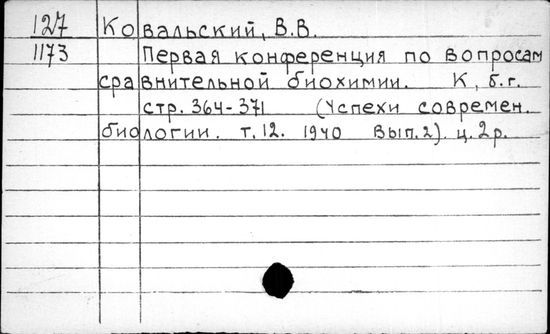 127 Ковальский, В.В.
1173 Первая конференция по вопросам
сравнительной биохимии. К, б.г.
стр. 364-371 (Успехи современ.
биологии. т.12. 1940 Вып.2). ц. 2р.